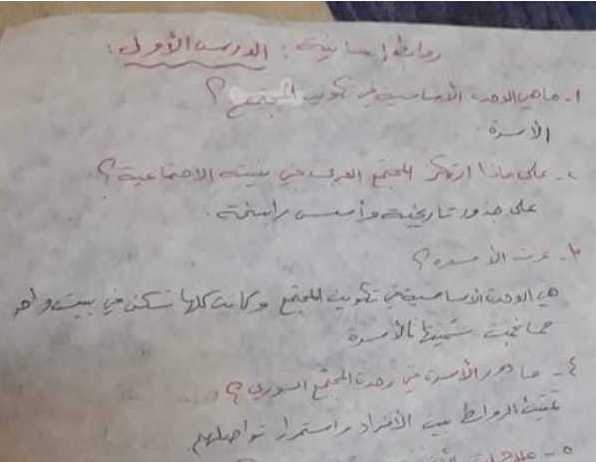 روابط إنسانية: الدرس الأول:
١- ما هي الوحدة الأساسية في تكوين المجتمع؟
الأسرة
٢- على ماذا ارتكز المجتمع العربي في بنيته الاجتماعية؟
على جذور تاريخية وأسس راسخة.
٣- عرف الأسرة؟
هي الوحدة الأساسية في تكوين المجتمع وكانت كلها تسكن في بيت واحد
تسميتها بالأسرة
٤- ما دور الأسرة في وحدة المجتمع السوري؟
تمتين الروابط بين الأفراد واستمرار تواصلهم
٥-